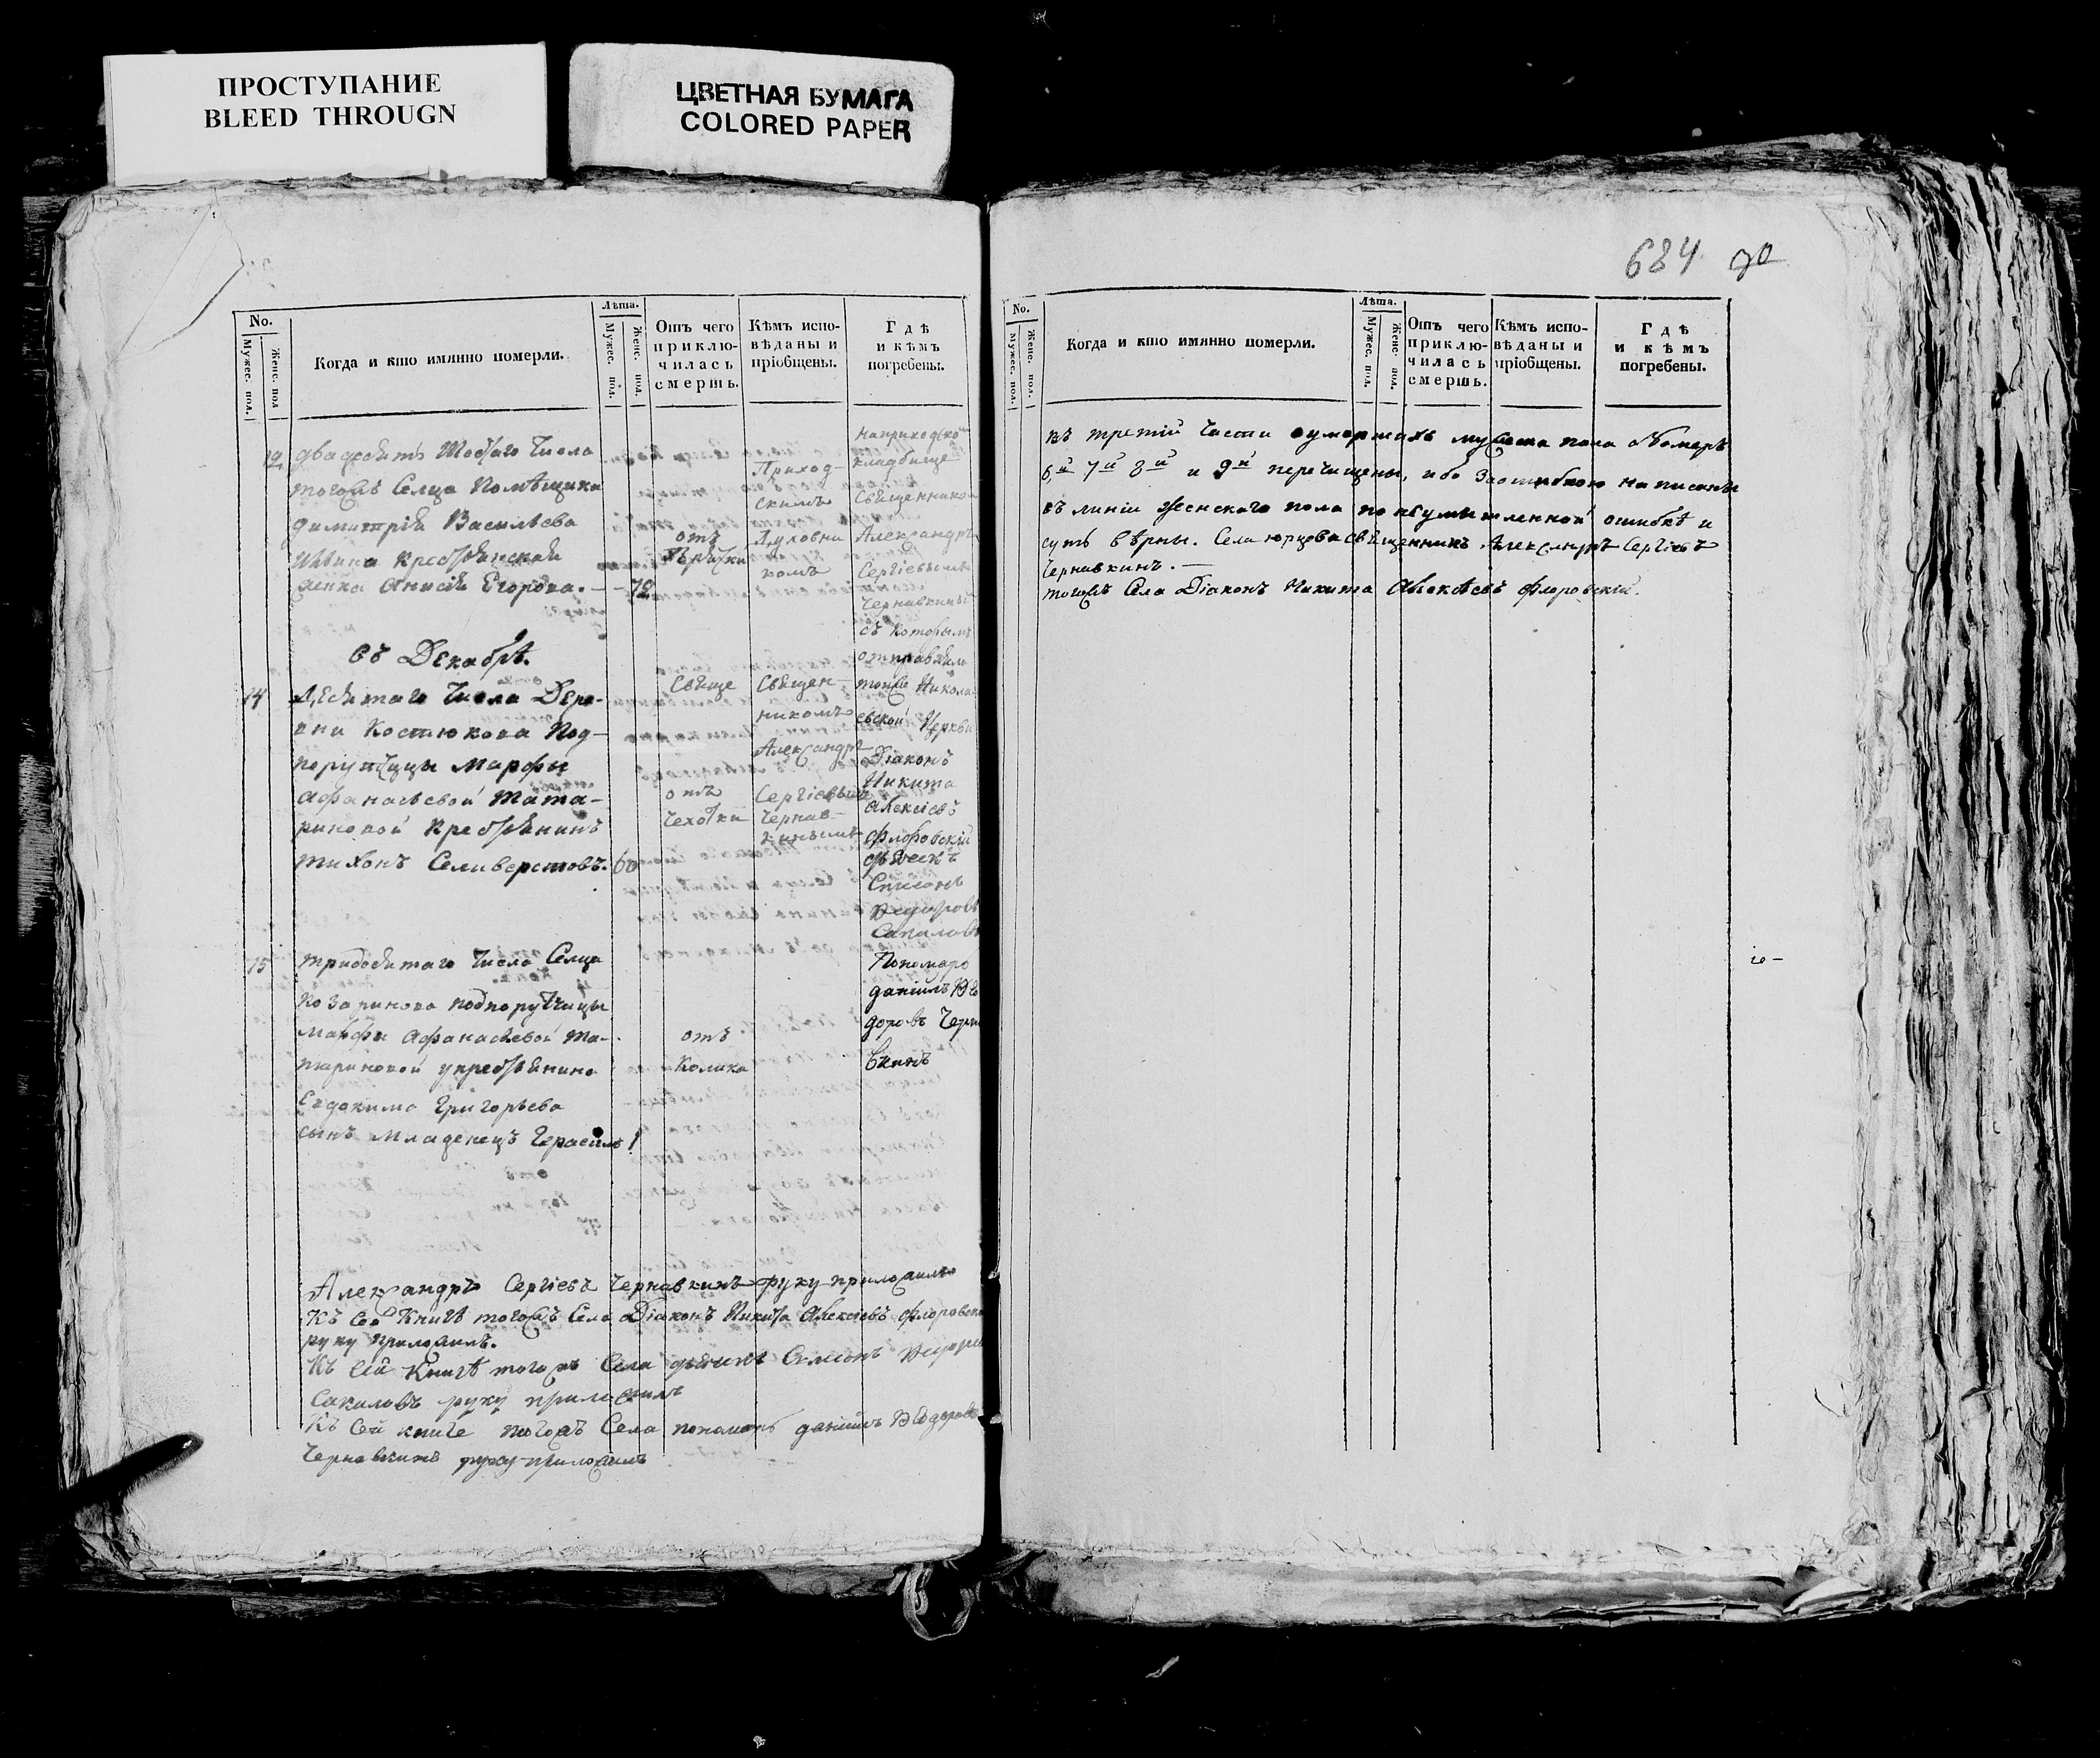 ПРОСТУПАНИЕ
BLEED THROUGN
ЦВЕТНАЯ БУМАГА
COLORED PAPER
No.
Мужес. пол.
Женс. пол
Когда и кто имянно померли.
Лѣта.
Мужес. пол.
Женс. пол.
Отъ чего
приклю-
чилась
смерть.
Кѣмъ испо-
вѣданы и
пріобщены.
Гдѣ
и кѣмъ
погребены.
двадесять шестаго Числа
тогожъ Селца Помѣщика
Димитрія Васильева
крестьянская
Анисія Егорова. — 72
отъ
Приход-
скимъ
Духовни
комъ
на приходско
кладбище
Священником
Александръ
Сергіевымъ
Чернавкинымъ
съ которымъ
отправлял
тояже Никола
евской Церкви
Діаконъ
Никита
Алексіевъ
Флоровскій
дьячекъ
Симіонъ
Феодоров
Сакаловъ
Пономарь
даніилъ Фео
доровъ Черна
вкинъ
въ Декабрѣ.
14 Десятаго Числа Дере-
вни Костюкова Под-
порутчицы Марфы
Афанасьевой Тата-
риновой крестьянинъ
Тихонъ Селиверстовъ. 60
отъ
чехотки
Священ-
никомъ
Александр
Сергіевымъ
Чернав-
кинымъ
15 тридесятаго Числа Селца
Козаринова подпорутчицы
Марфы Афанасьевой Та-
тариновой у крестьянина
Евдокима Григорьева
сынъ младенецъ Герасимъ 1
отъ
Колика
Александръ Сергіевъ Чернавкинъ руку приложилъ
Къ сей Книгѣ тогожъ Села Діаконъ Никита Алексіевъ Флоровски
руку приложилъ.
Къ сей Книгѣ тогожъ Села дьячекъ Симіонъ Феодоров
Сакаловъ руку приложилъ
Къ сей книге тогожъ Села пономарь даніилъ Феодоровъ
Чернавкинъ руку приложилъ
684 70
No.
Мужес. пол.
Женс. пол.
Когда и кто имянно померли.
Лѣта.
Мужес. пол.
Женс. пол.
Отъ чего
приклю-
чилась
смерть.
Кѣмъ испо-
вѣданы и
пріобщены.
Гдѣ
и кѣмъ
погребены.
въ третій части о умершихъ мужеска пола Номеръ
6й 7й 8й и 9й перечищены, ибо за ошибкою написаны
въ линіи женскаго пола по неумышленной ошибкѣ и
суть вѣрны. Села Юрцова священникъ Александръ Сергіевъ
Чернавкинъ. —
тогожъ Села Діаконъ Никита Алексѣевъ Флоровскій.